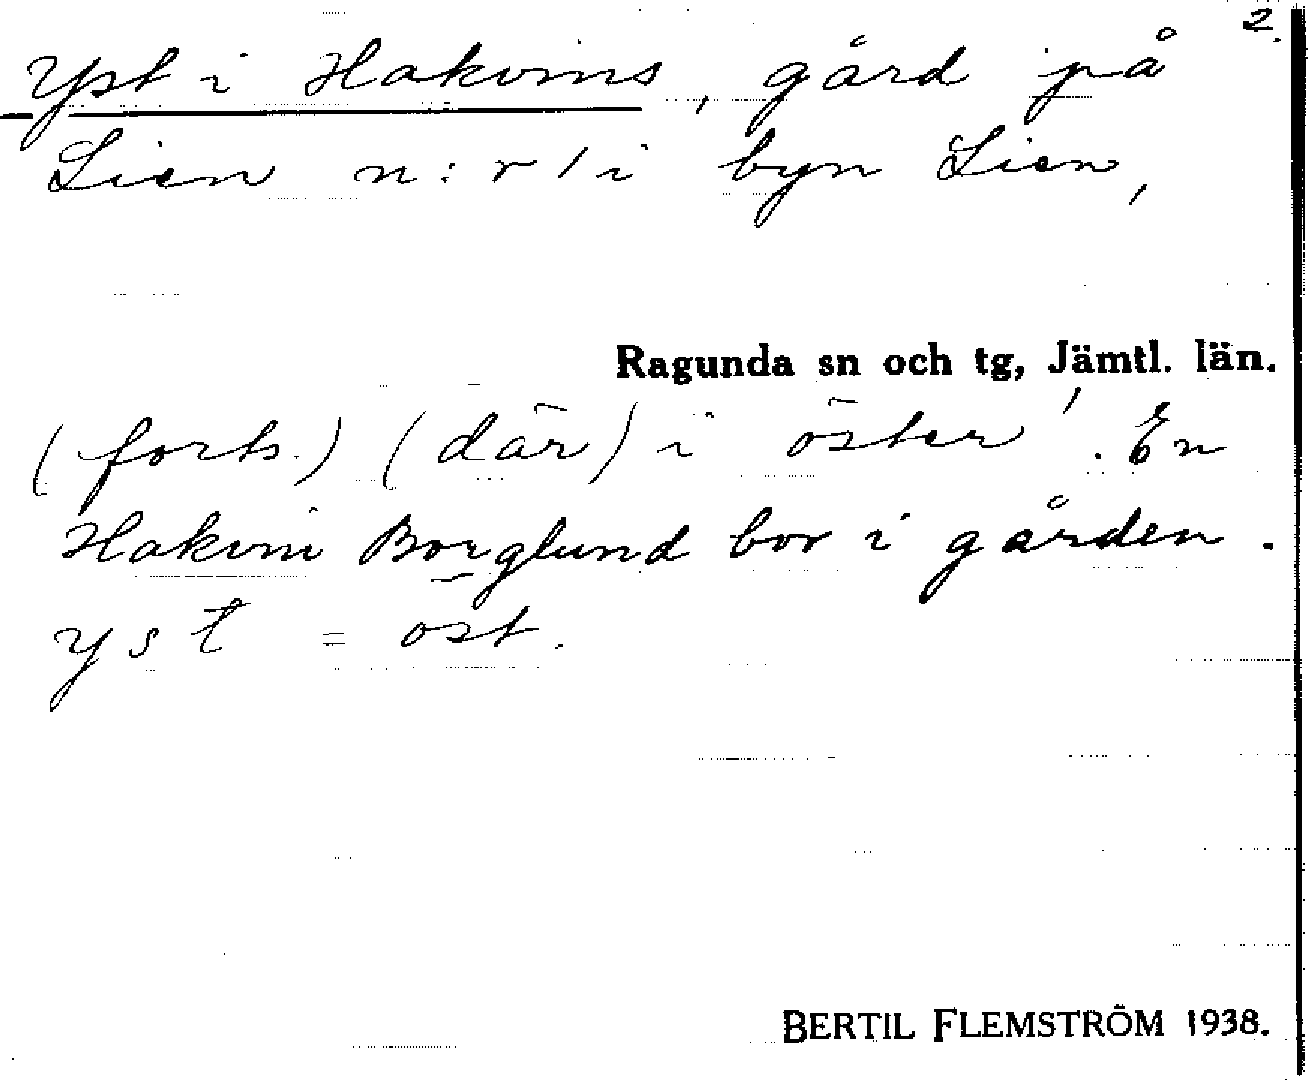 2.
Yst i Hakvins, gård på
Lien n:r 1 i byn Lien,
Ragunda sn och tg, Jämtl. län.
(forts.) (där) i öster'. En
Hakvin Borglund bor i gården.
yst = öst.
BERTIL FLEMSTRÖM 1938.